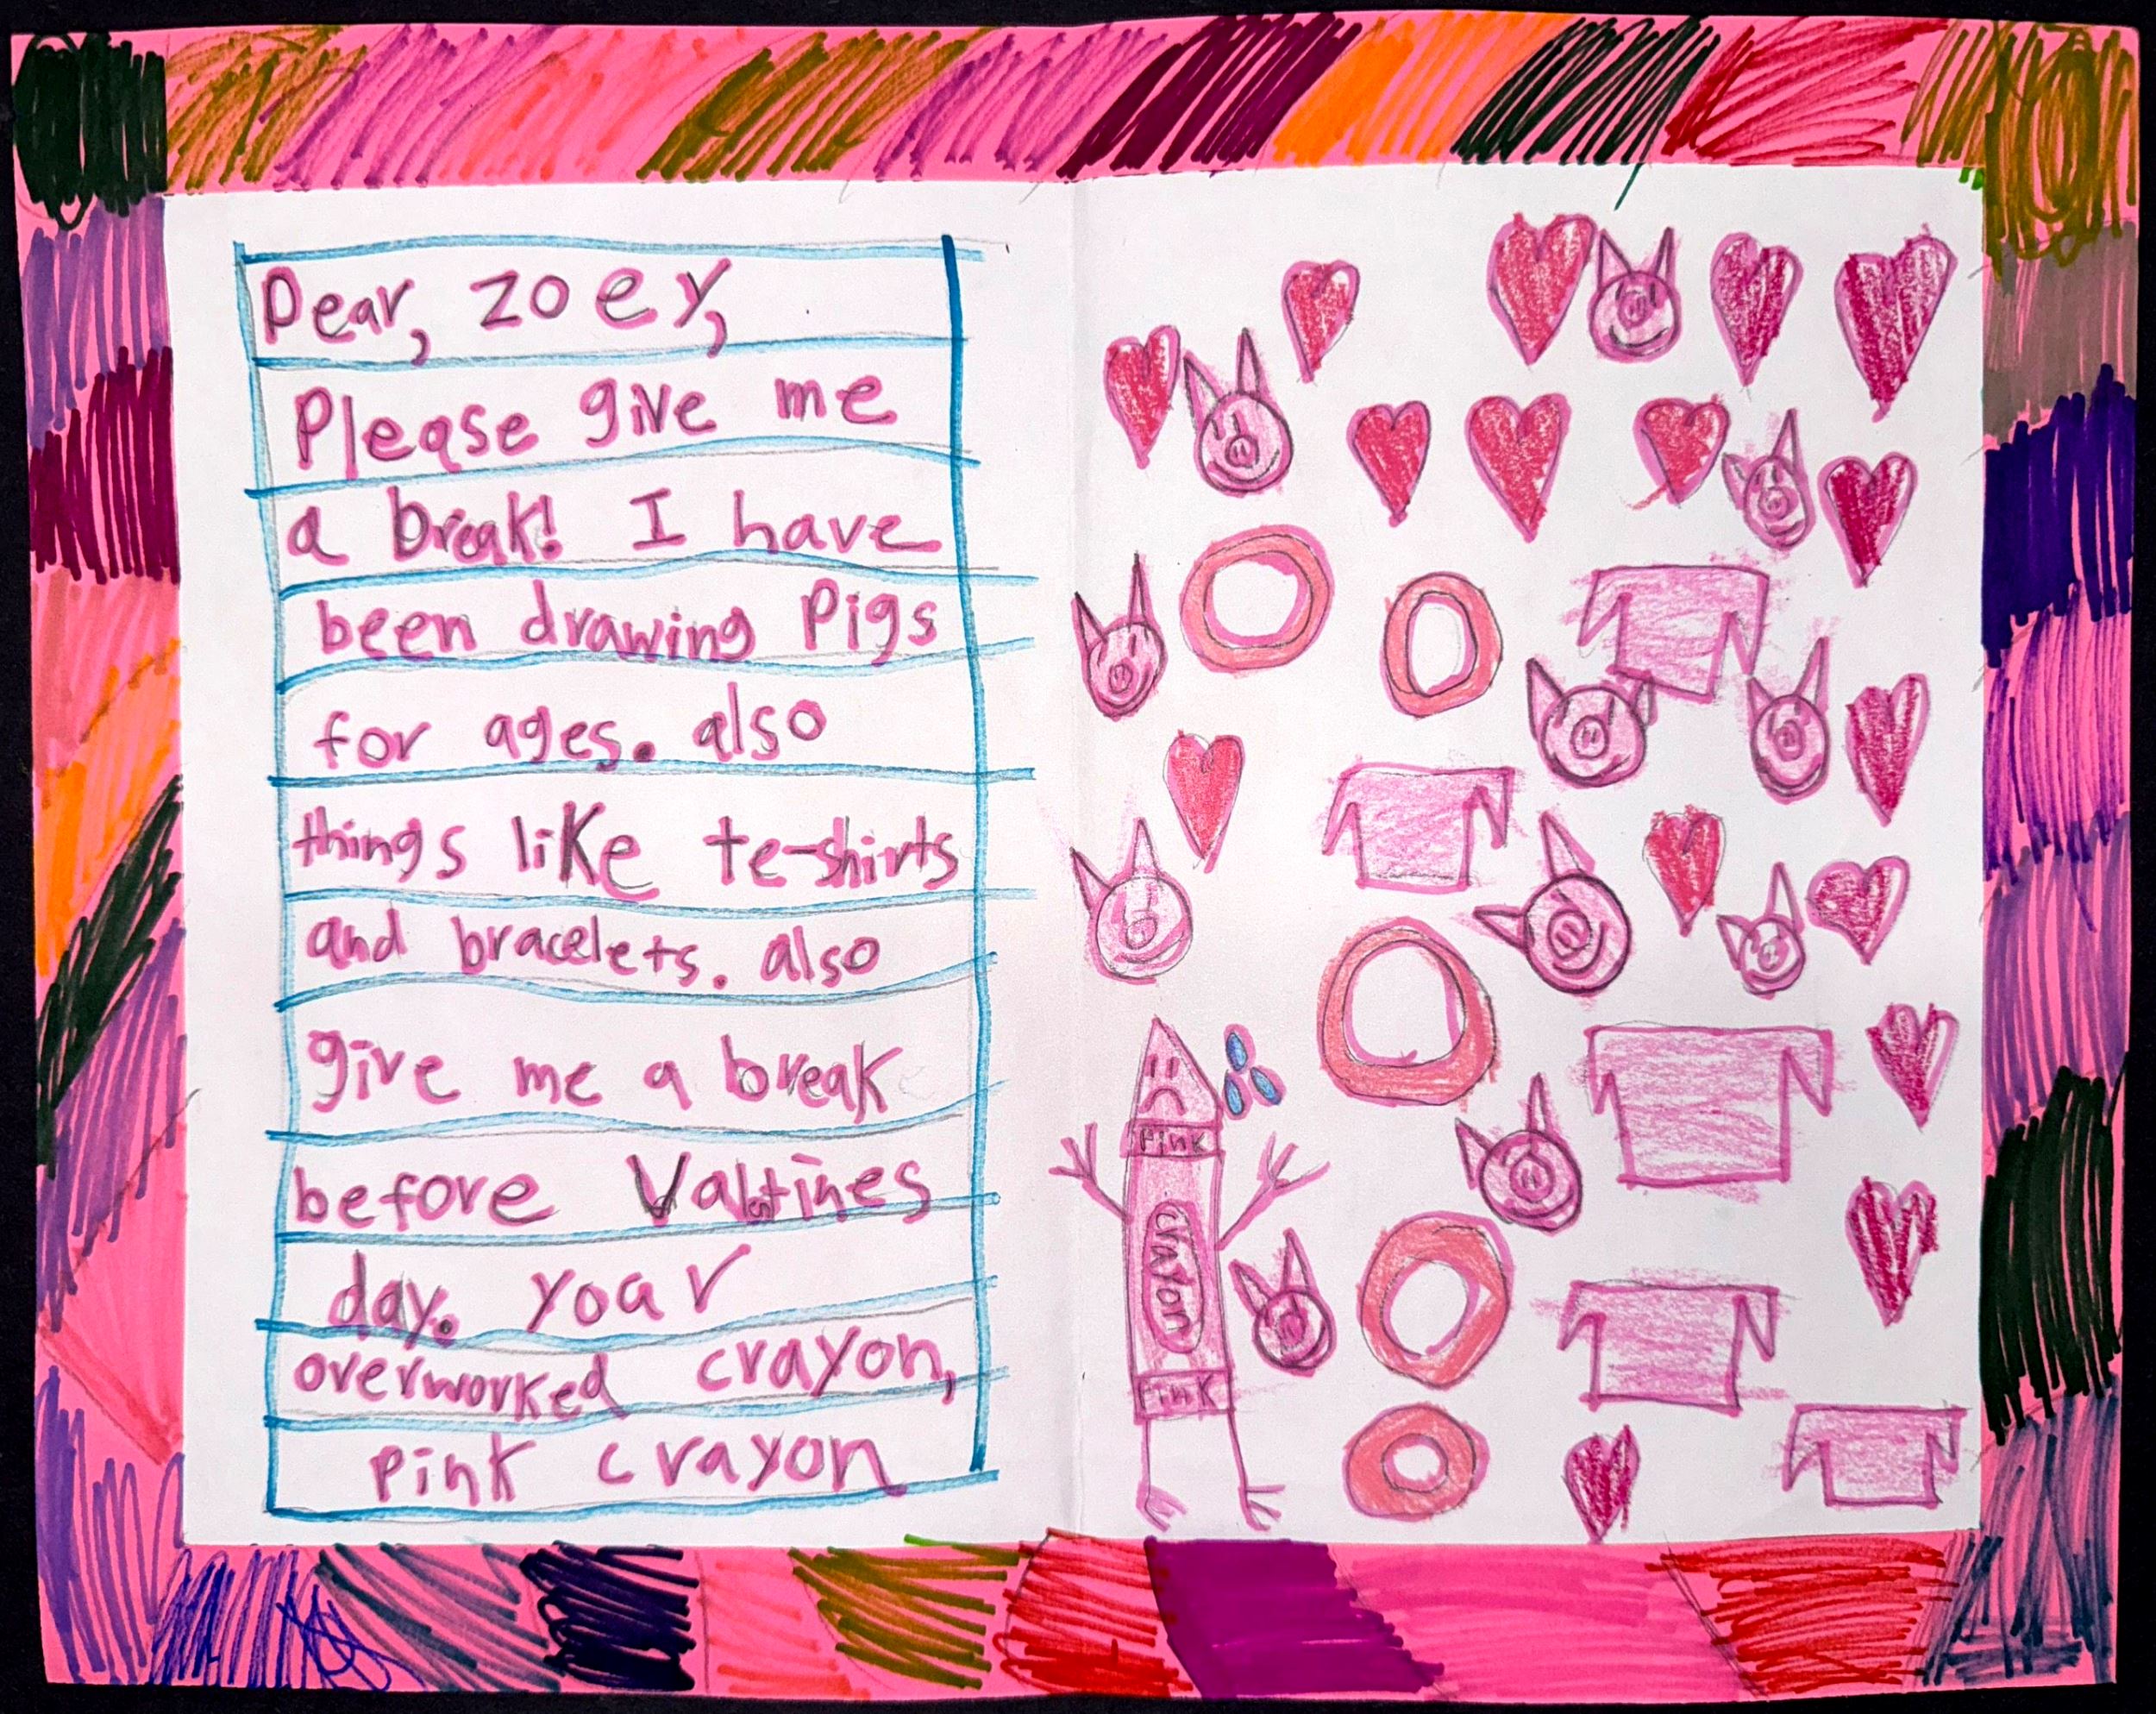 Dear, zoey,
Please give me
a break! I have
been drawing Pigs
for ages. also
things like te-shirts
and bracelets. also
give me a break
before Valtines
day. yoar
overworked crayon,
pink crayon
Pink
crayon
Pink